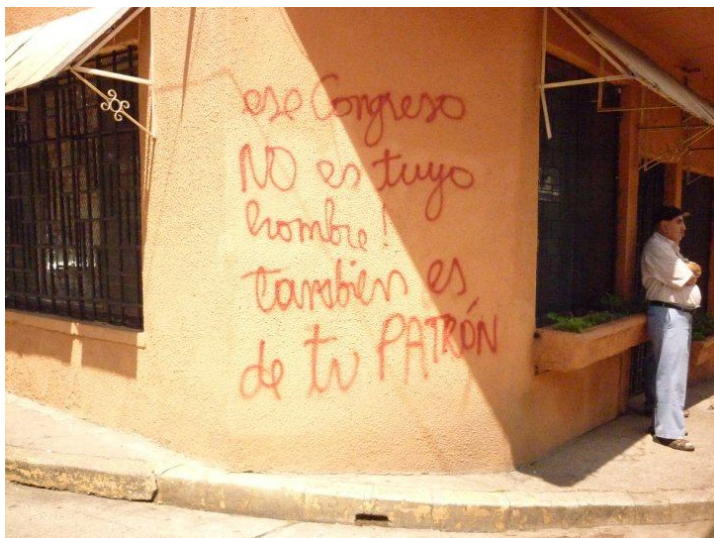 ese Congreso
NO es tuyo
hombre!
también es
de tu PATRÓN